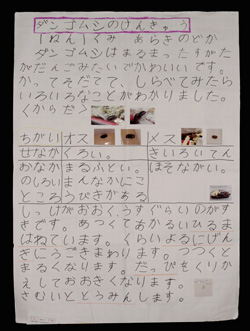 ダンゴムシのけんきゅう
1ねん1くみ あらきのどか
ダンゴムシはまるまったすがた
がだんごみたいでかわいいです。
かってみてて、しらべてみたら
いろいろなことがわかりました。
ちがい オス メス
せなか くろい。 きいろいてん
おなか まるふとい。 ほそながい。
のしろい まんなかに
ところ
しっけがおおく、うすぐらいのがす
きです。あつくてあかるいひるま
はねています。くらいよるにげん
きにうごきまわります。つつくと
まるくなります。だっぴをくりか
えしておおきくなります。
さむいととうみんします。